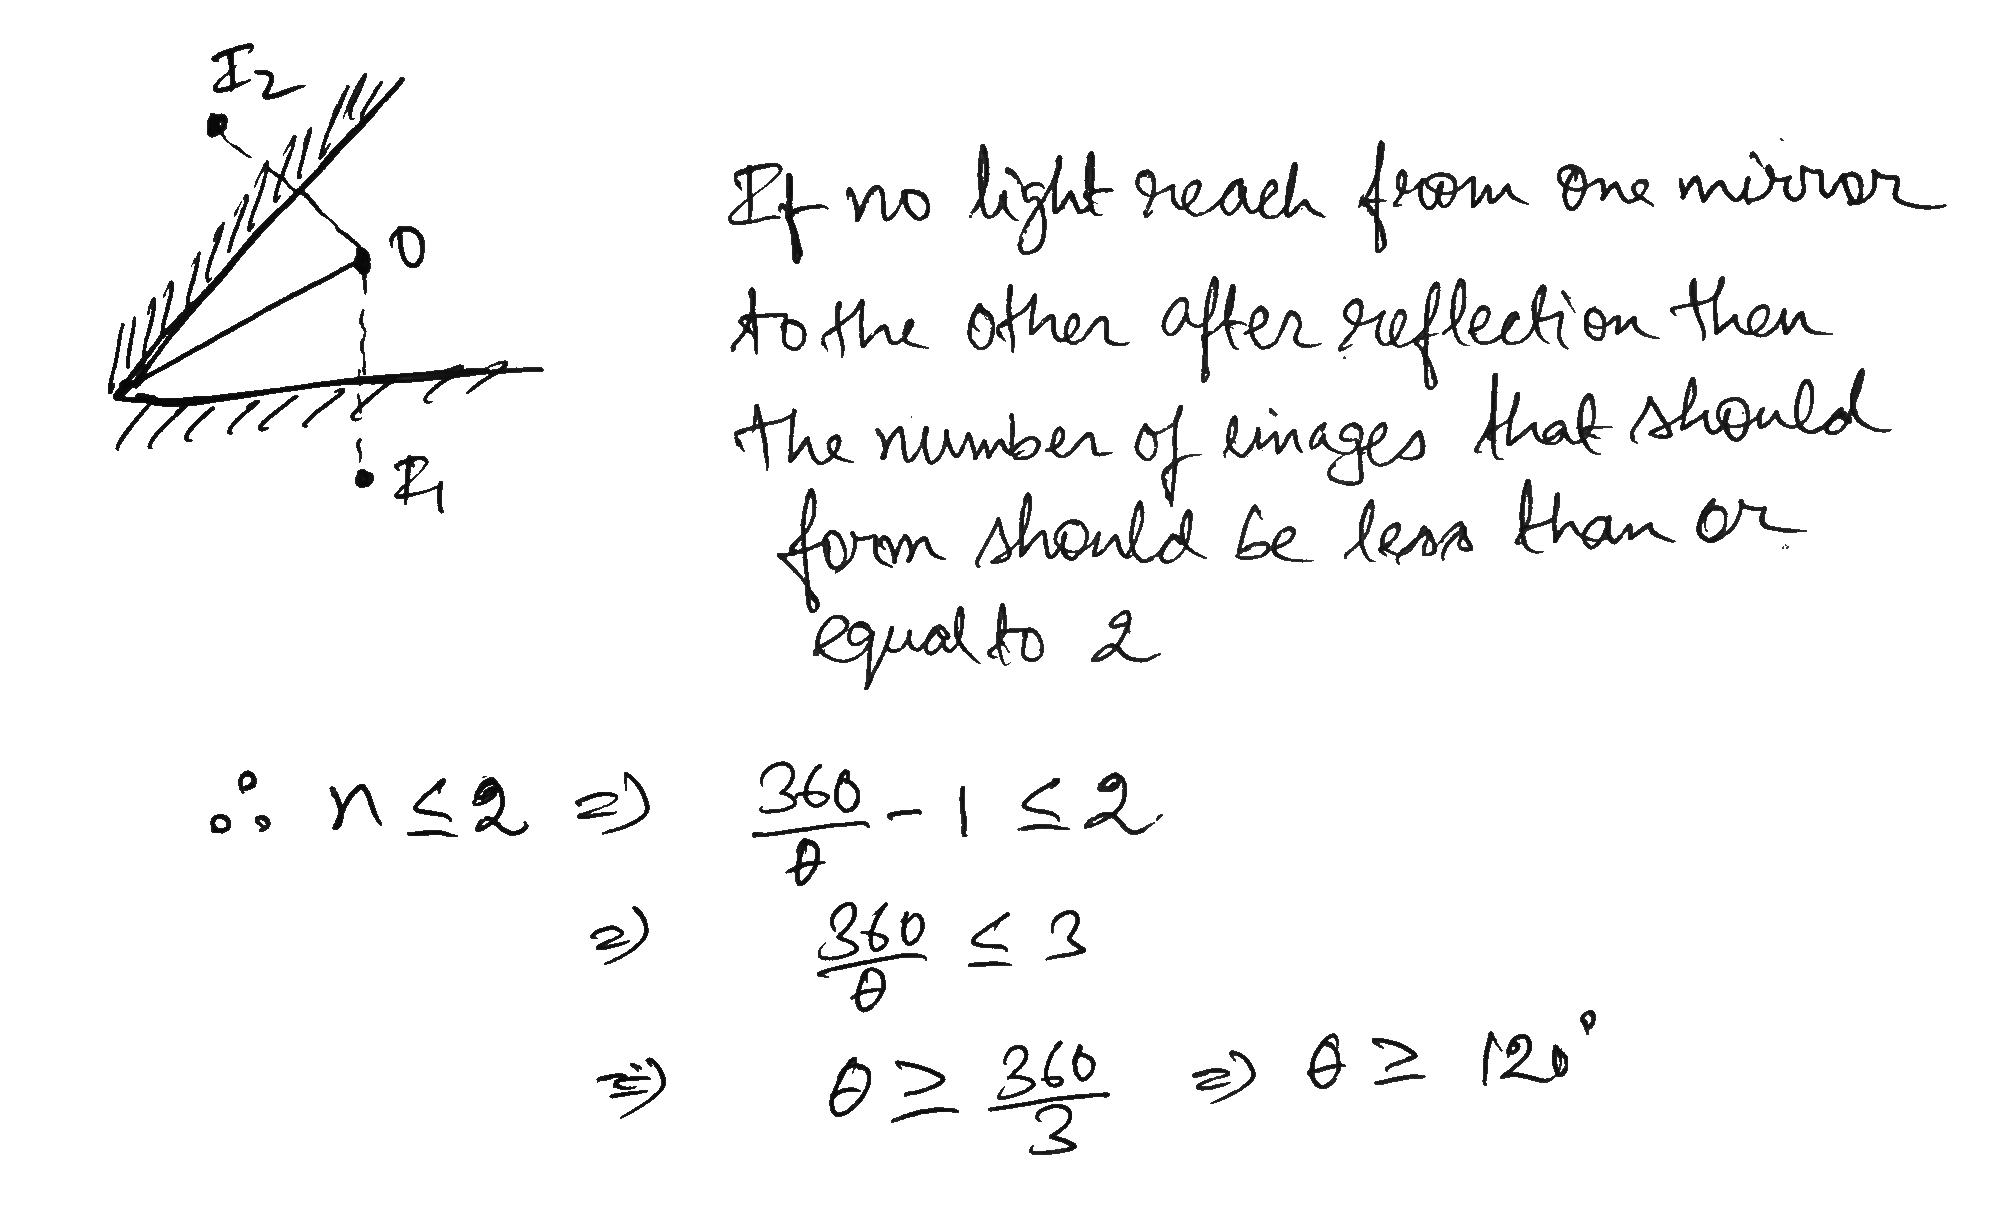 I2
O
I1
If no light reach from one mirror
to the other after reflection then
the number of images that should
form should be less than or
equal to 2
∴ n ≤ 2 ⇒ 360/θ - 1 ≤ 2
⇒ 360/θ ≤ 3
⇒ θ ≥ 360/3 ⇒ θ ≥ 120°